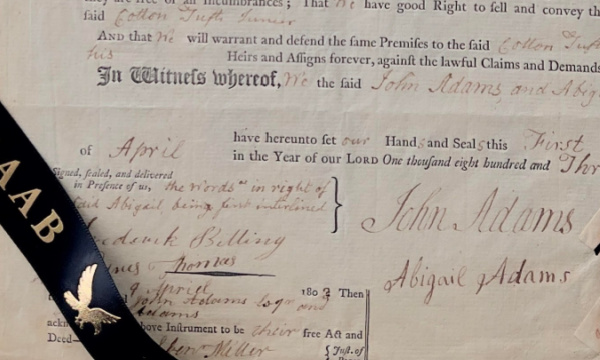 they are free of all Incumbrances; That We have good Right to sell and convey th
said Cotton Tufts Junior
AND that We will warrant and defend the same Premises to the said Cotton Tuft
his Heirs and Assigns forever, against the lawful Claims and Demands
In Witness whereof, We the said John Adams and Abig
have hereunto set our Hands and Seals this First
of April in the Year of our LORD One thousand eight hundred and Thr
Signed, sealed, and delivered
in Presence of us, the words "in right of
said Abigail being first interlined
John Adams
ederick Billing
Thomas
Abigail Adams
April 1803 Then
John Adams Esqr and
Adams
ackn above Instrument to be their free Act and
Deed— Miller Just. of
AAB